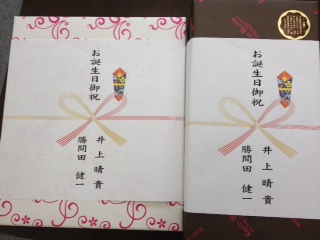 お誕生日御祝
井上晴貴
勝間田健一
お誕生日御祝
井上晴貴
勝間田健一